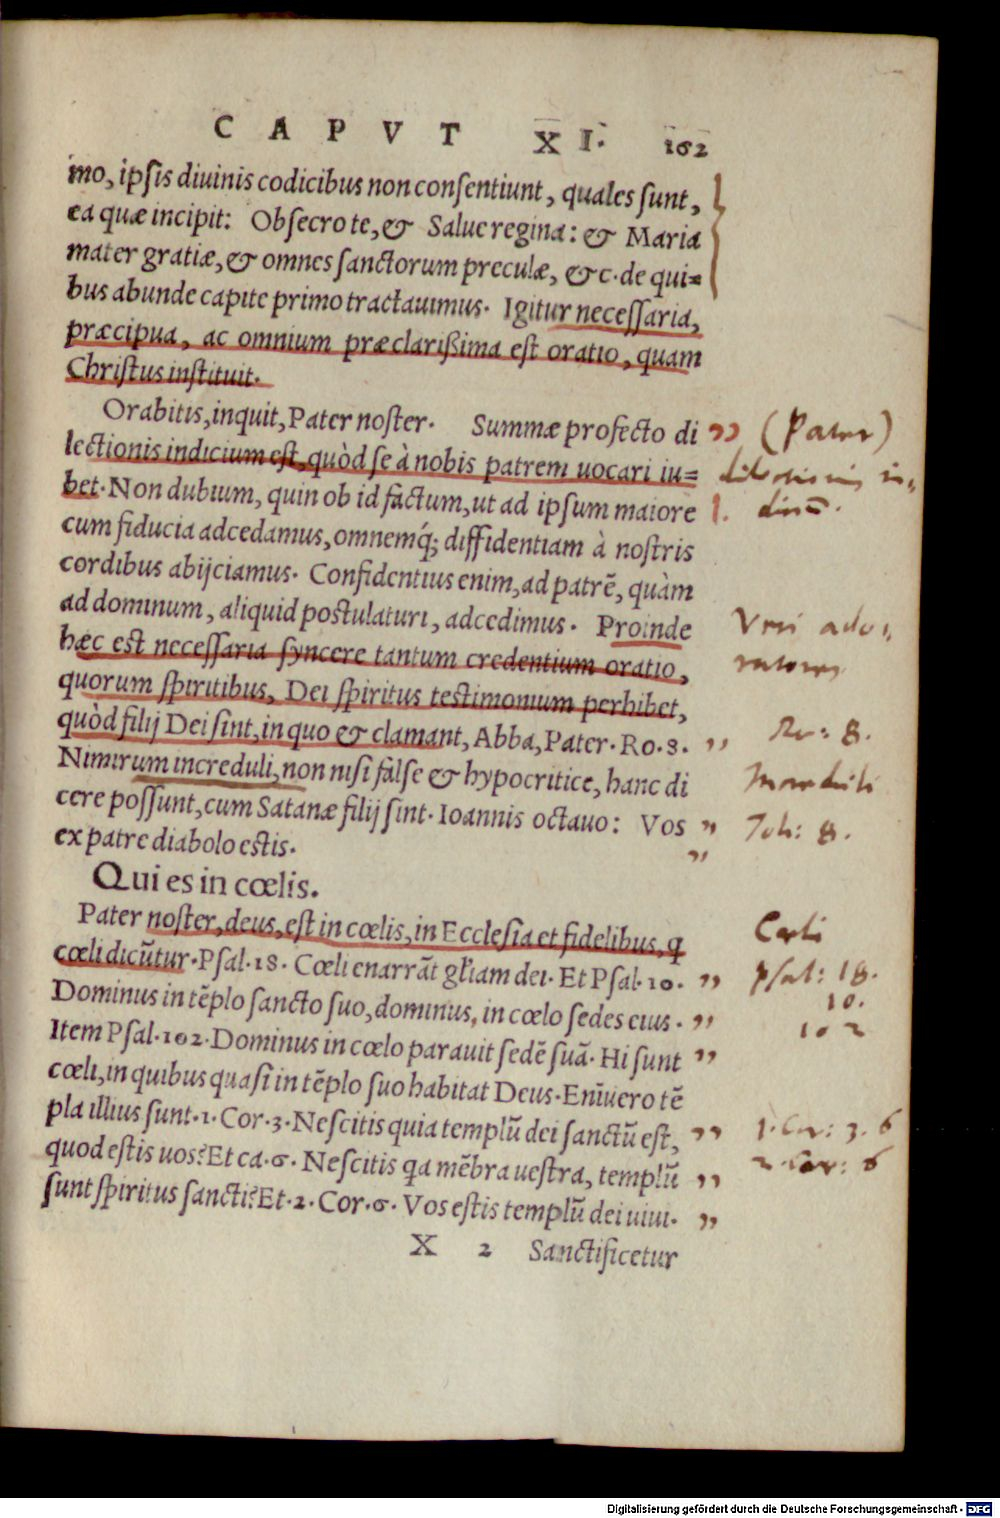 CAPVT XI. 162
mo, ipsis diuinis codicibus non consentiunt, quales sunt,
ea quæ incipit: Obsecro te, & Salue regina: & Maria
mater gratiæ, & omnes sanctorum preculæ, &c. de qui=
bus abunde capite primo tractauimus. Igitur necessaria,
præcipua, ac omnium præclarißima est oratio, quam
Christus instituit.
Orabitis, inquit, Pater noster. Summæ profecto di
lectionis indicium est, quòd se à nobis patrem uocari iu=
bet. Non dubium, quin ob id factum, ut ad ipsum maiore
cum fiducia adcedamus, omnemq́; diffidentiam à nostris
cordibus abijciamus. Confidentius enim, ad patrē, quàm
ad dominum, aliquid postulaturi, adcedimus. Proinde
hæc est necessaria syncere tantum credentium oratio,
quorum spiritibus, Dei spiritus testimonium perhibet,
quòd filij Dei sint, in quo & clamant, Abba, Pater. Ro. 8.
Nimirum increduli, non nisi false & hypocritice, hanc di
cere possunt, cum Satanæ filij sint. Ioannis octauo: Vos
ex patre diabolo estis.
Qui es in cœlis.
Pater noster, deus, est in cœlis, in Ecclesia et fidelibus, q
cœli dicūtur. Psal. 18. Cœli enarrāt gl̃iam dei. Et Psal. 10.
Dominus in tēplo sancto suo, dominus, in cœlo sedes eius.
Item Psal. 102. Dominus in cœlo parauit sedē suā. Hi sunt
cœli, in quibus quasi in tēplo suo habitat Deus. Enīuero tē
pla illius sunt. 1. Cor. 3. Nescitis quia templū dei sanctū est,
quod estis uos? Et ca. 6. Nescitis qa mēbra uestra, templū
sunt spiritus sancti? Et. 2. Cor. 6. Vos estis templū dei uiui.
X 2 Sanctificetur
(Pater)
Veri ado,,
ratores
Ro: 8.
Joh: 8.
Coeli
psal: 18.
10.
102
1. Cor: 3. 6
2. Cor: 6
Digitalisierung gefördert durch die Deutsche Forschungsgemeinschaft - DFG